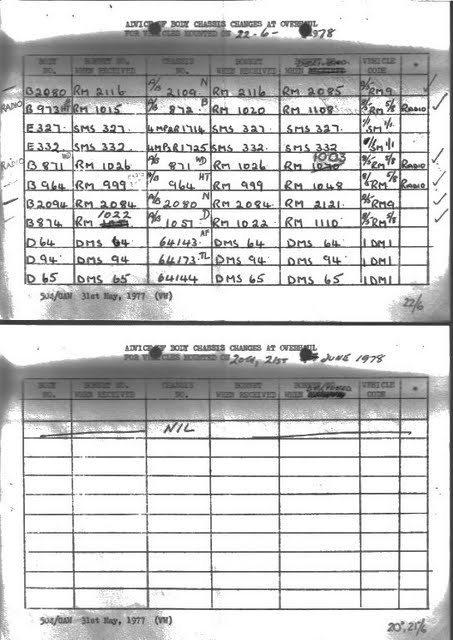 ADVICE OF BODY CHASSIS CHANGES AT OVERHAUL
FOR VEHICLES MOUNTED ON 22-6- 1978
BODY NO. BONNET NO. WHEN RECEIVED CHASSIS NO. BONNET WHEN RECEIVED BONNET WHEN VEHICLE CODE *
B2080 RM 2116 A/B 2109 N RM 2116 RM 2085 RM9
RADIO B972 RM 1015 A/B 872 B RM 1020 RM 1108 RM 5/8 RADIO
E327 SMS 327 4MPAR1714 SMS 327 SMS 327 SM 1/1
E332 SMS 332 4MPAR1725 SMS 332 SMS 332 SM 1/1
RADIO B871 WD RM 1026 A/B 871 WD RM 1026 RM 1003 RM 5/8 RADIO
B964 RM 999 A/B 964 HT RM 999 RM 1048 RM 5/8 RADIO
B2094 RM 2084 A/B 2080 N RM 2084 RM 2121 RM9
B874 RM 1022 A/B 1051 D RM 1022 RM 1110 RM 5/8
D64 DMS 64 64143 AF DMS 64 DMS 64 1DM1
D94 DMS 94 64173 TL DMS 94 DMS 94 1DM1
D65 DMS 65 64144 DMS 65 DMS 65 1DM1
502/GAN 31st May, 1977 (VW) 22/6
ADVICE OF BODY CHASSIS CHANGES AT OVERHAUL
FOR VEHICLES MOUNTED ON 20TH, 21ST JUNE 1978
BODY NO. BONNET NO. WHEN RECEIVED CHASSIS NO. BONNET WHEN RECEIVED BONNET WHEN VEHICLE CODE *
NIL
502/GAN 31st May, 1977 (VW) 20, 21/6